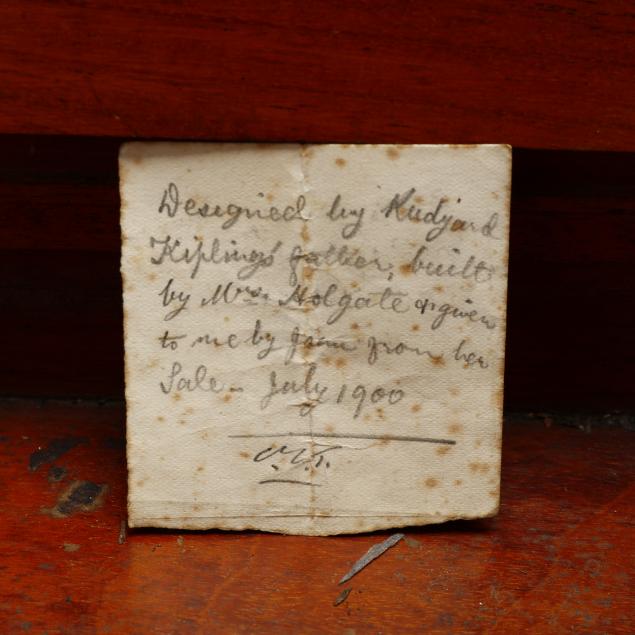 Designed by Rudyard
Kiplings' father, built
by Mrs. Holgate & given
to me by from her
Sale - July 1900